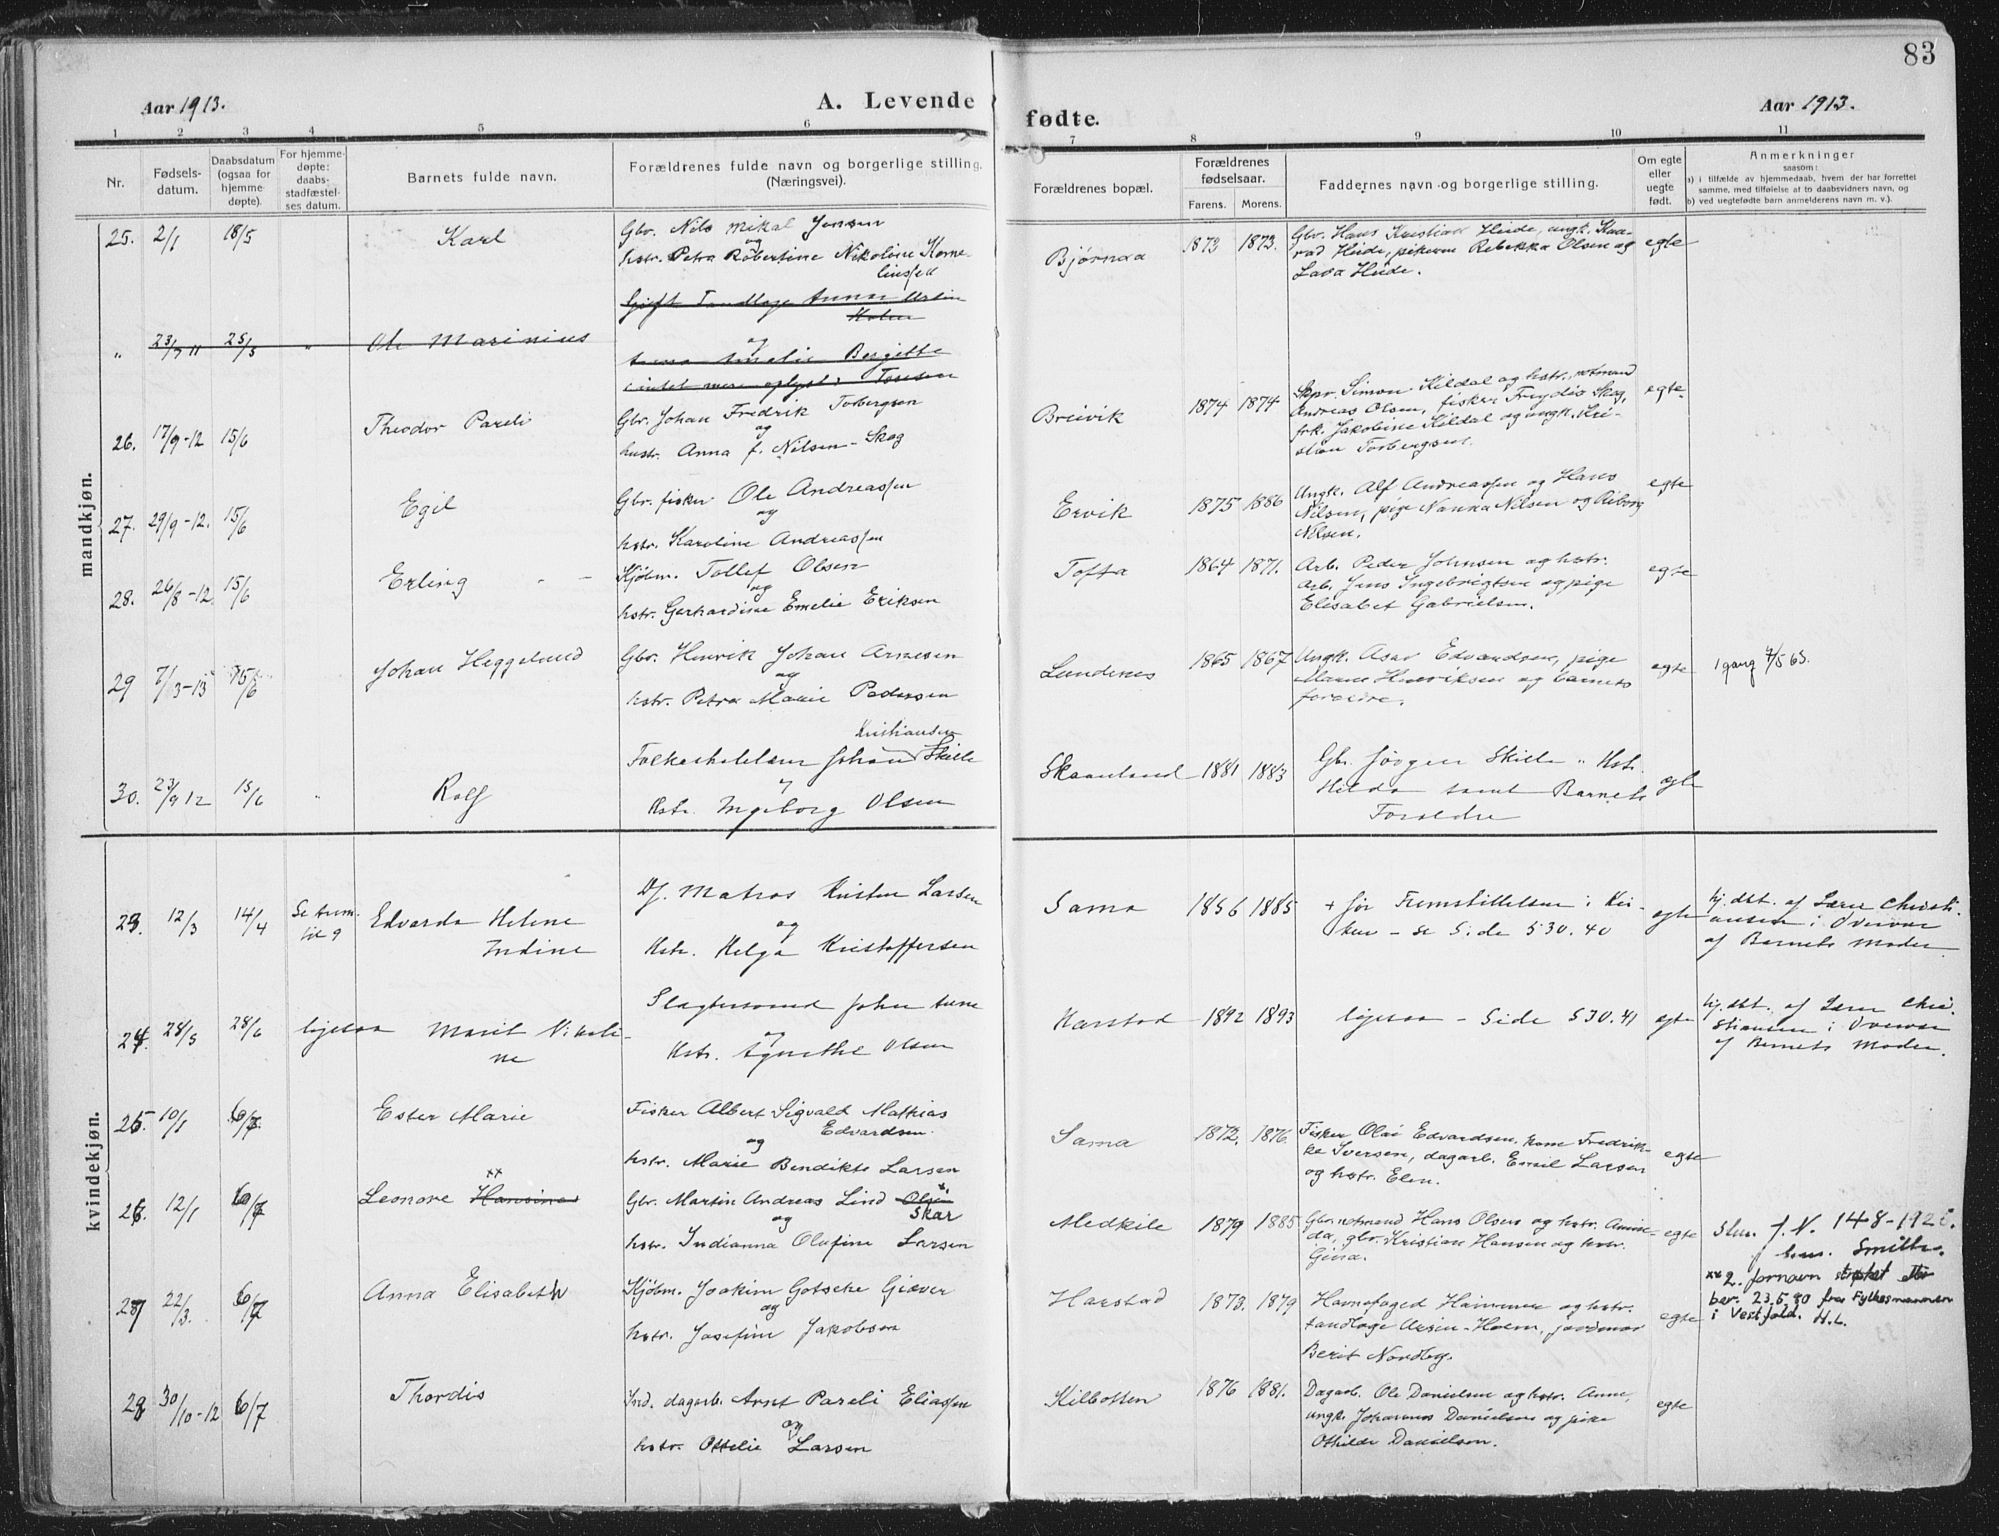 83
Aar 1913.
A. Levende
fødte.
Aar 1913.
1 2 3 4 5 6 7 8 9 10 11
Nr.
Fødsels-
datum.
Daabsdatum
(ogsaa for
hjemme-
døpte).
For hjemme-
døpte:
daabs-
stadfæstel-
ses datum.
Barnets fulde navn.
Forældrenes fulde navn og borgerlige stilling.
(Næringsvei).
Forældrenes bopæl.
Forældrenes
fødselsaar.
Farens. Morens.
Faddernes navn og borgerlige stilling.
Om egte
eller
uegte
født.
Anmerkninger
saasom:
a) i tilfælde av hjemmedaab, hvem der har forrettet
samme, med tilføielse af to daabsvidners navn, og
b) ved uegtefødte barn anmelderens navn m. v.).
mandkjøn.
25. 2/1 18/5 Karl
Gbr. Nils Mikal Jensen
og
hstr. Petra Robertine Nikoline Korne-
liussen
Bjørnaa 1873 1873.
Gbr. Hans Kristian Heide, ungk. Kaa-
rad Heide, pikerne Rebekka Olsen og
Lava Heide.
egte
" 25/5 " Ole Marinius
Gift Tandlæge Anna Ursin
Holm
og
Anna Amalie Bergitte
(intet mere oplyst) Toresen
26. 17/9-12 15/6 Theodor Pareli
Gbr. Johan Fredrik Torbergsen
og
hustr. Anna f. Nilsen-Skog
Breivik 1874 1874
Skpr. Simon Kildal og hstr., notmand
Andreas Olsen, fisker Frejdis Skog,
frk. Jakobine Kildal og ungk. Kri-
stian Torbergsen.
egte
27. 29/9-12. 15/6 Egil
Gbr. fisker Ole Andreassen
og
hstr. Karoline Andreassen
Ervik 1875 1886
Ungk. Alf Andreassen og Hans
Nilsen, pige Nanna Nilsen og Riborg
Nilsen.
egte
28. 26/8-12. 15/6 Erling
Kjøbm. Tollef Olsen
og
hstr. Gerhardine Emelie Eriksen
Tofta 1864 1871.
Arb. Peder Johnsen og hstr.
arb. Jens Ingebrigtsen og pige
Elisabet Gabrielsen.
egte
29 7/3-13 15/6 Johan Heggelund
Gbr. Henrik Johan Arnesen
og
hstr. Petra Marie Pedersen
Lundenes 1865 1867
Ungk. Asar Edvardsen, pige
Marie Henriksen og barnets
foreldre.
egte
1 gang 4/5 63.
30. 23/9 12 15/6 " Rolf
Kristiansen
Folkeskolelærer Johan Skille
og
Hstr. Ingeborg Olsen
Skaanland 1881 1883
Gbr. Jørgen Skille " Hstr.
Hilda samt Barnets
Forældre
egte
kvindekjøn.
23. 12/3 14/4 Se anm.
til 9
Edvarda Helene
Indine
Df. Matros Kristen Larsen
og
Hstr. Helga Kristoffersen
Sama 1856 1885
+ før Fremstillelsen i Kir-
ken - se Side 530.40
egte
hj. dbt. af Lærer Christi-
ansen i Overvær
af Barnets Moder
24. 28/5 28/6 ligesaa Marit Nikoli-
ne
Slagtersvend John Aune
og
Hstr. Agnethe Olsen
Harstad 1892 1893
ligesaa - Side 530.41
egte
hj. dbt. af Lærer Chri-
stiansen i Overvær
af Barnets Moder.
25. 10/1 6/7. Ester Marie
Fisker Albert Sigvald Mathias
Edvardsen.
og
hstr. Marie Bendikte Larsen
Sama 1872. 1876.
Fisker Olai Edvardsen, kone Fredrik-
ke Iversen, dagarb. Emil Larsen
og hstr. Elen.
egte
26. 12/1 6/7 Leonore Hansine xx
Gbr. Martin Andreas Lind Olsen
Skar
og
hstr. Indianna Olufine Larsen
Medkile 1879 1885
Gbr. notmand Hans Olsen og hstr. Amin-
da, gbr. Kristian Hansen og hstr.
Gina.
egte
f. N. 148-1925.
xx 2. fornavn strøket etter
ber. 23.5.80 fra Fylkesmannen
i Vestfold. H.L.
27 22/3. 6/7 Anna Elisabeth
Kjøbm. Joakim Gotsche Giæver
og
hstr. Josefine Jakobsen
Harstad 1873. 1879
Havnefoged Hammer og hstr.
tandlæge Ursin-Holm, jordmor
Berit Nordberg.
egte
28 30/10-12 6/7 Thordis
Ind. dagarb. Arnt Pareli Eliassen
og
hstr. Ottelie Larsen
Kilbotten 1876 1881.
Dagarb. Ole Danielsen og hstr. Anne,
ungk. Johannes Danielsen og pike
Othilde Danielsen.
egte